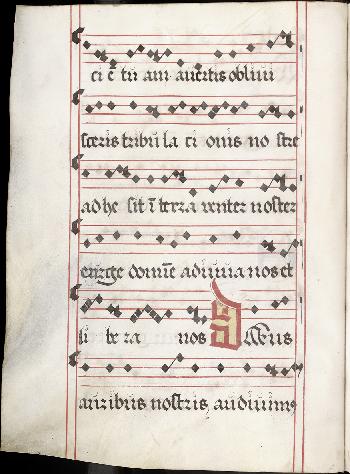 ci ē tu am auertis obliui
sceris tribu la ci onis no stre
ad he sit ī terra venter noster
exurge domine adiuua nos et
li be ra nos Deus
auribus nostris audiuimꝰ